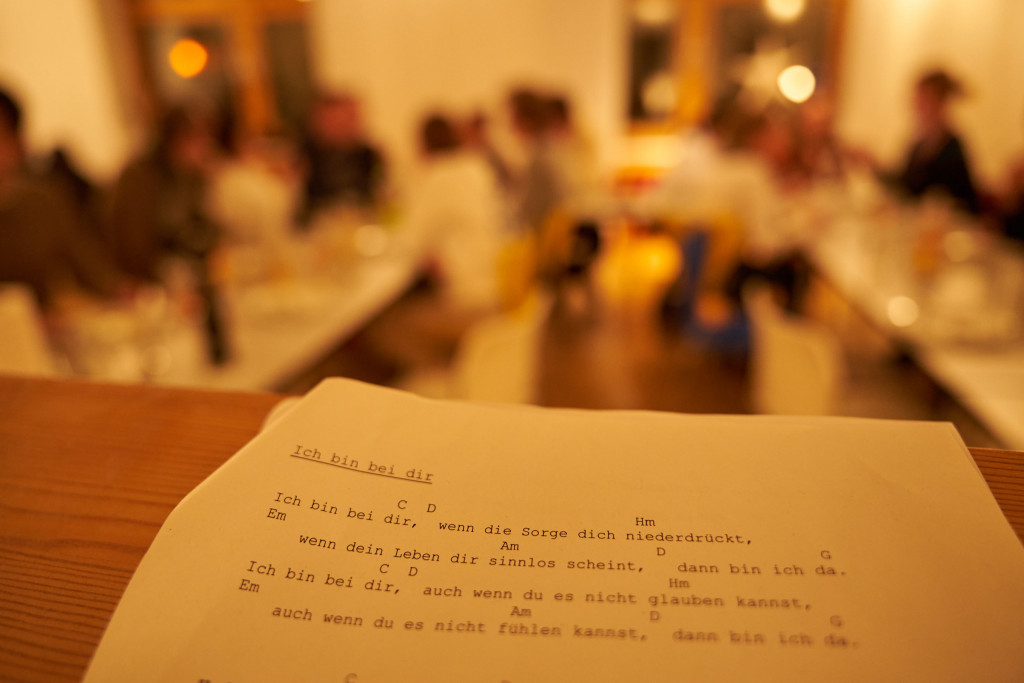 Ich bin bei dir
C D Hm
Ich bin bei dir, wenn die Sorge dich niederdrückt,
Em Am D G
wenn dein Leben dir sinnlos scheint, dann bin ich da.
C D Hm
Ich bin bei dir, auch wenn du es nicht glauben kannst,
Em Am D G
auch wenn du es nicht fühlen kannst, dann bin ich da.
C